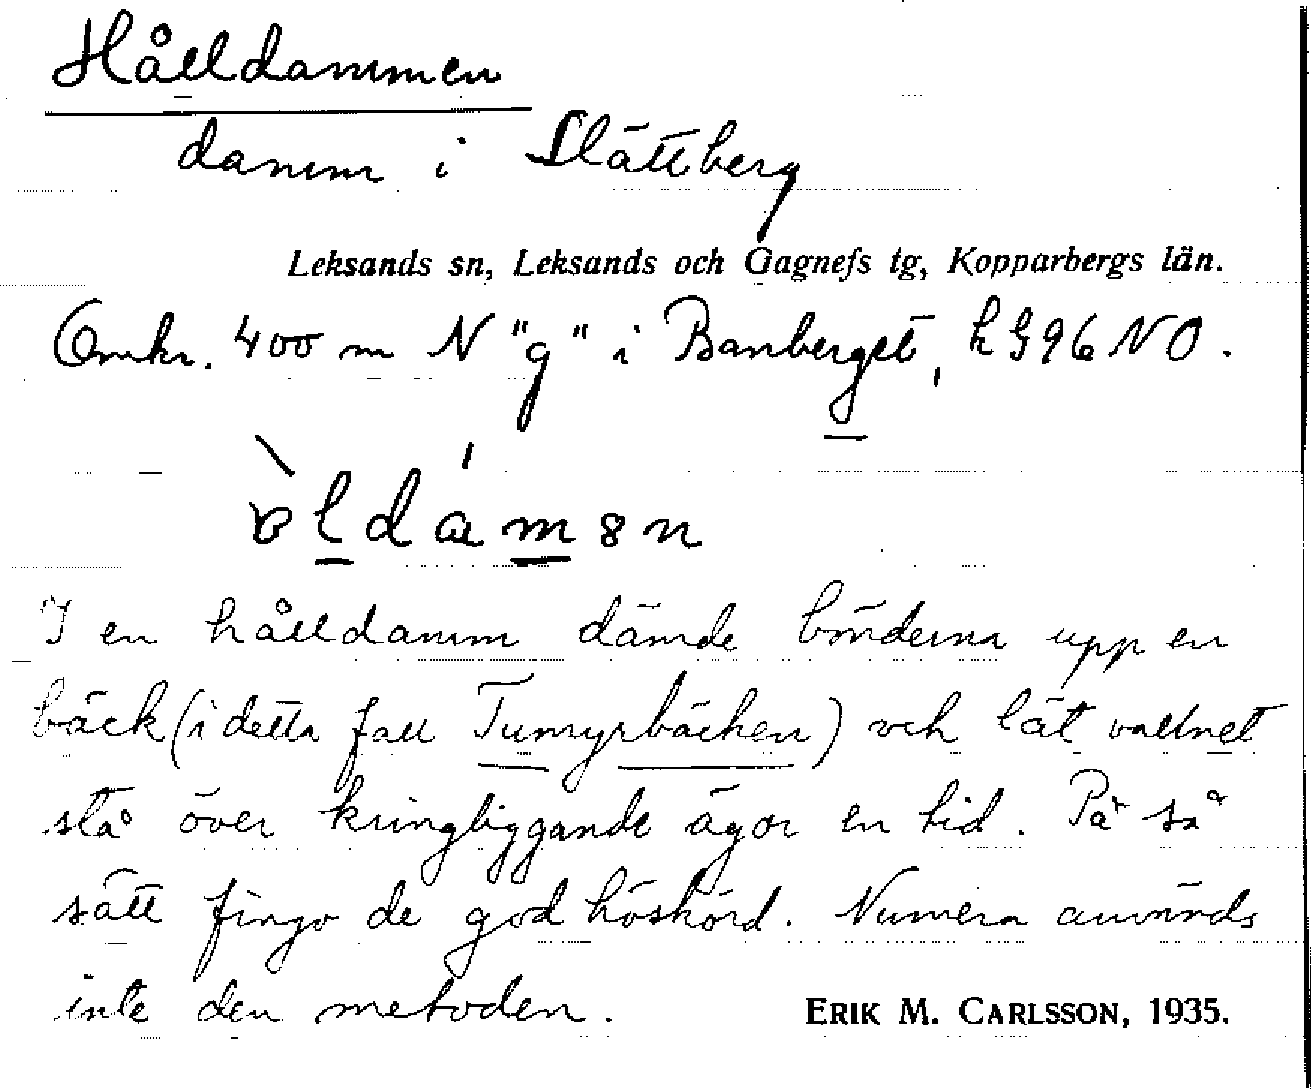 Hålldammen
damm i Slättberg
Leksands sn, Leksands och Gagnefs tg, Kopparbergs län.
Omkr. 400 m N "g" i Banberget, k§96 NO.
damen
I en hålldamm dämde bönderna upp en
bäck (i detta fall Tumyrbäcken) och lät vattnet
stå över kringliggande ägor en tid. På så
sätt fingo de god höskörd. Numera används
inte den metoden.
ERIK M. CARLSSON, 1935.